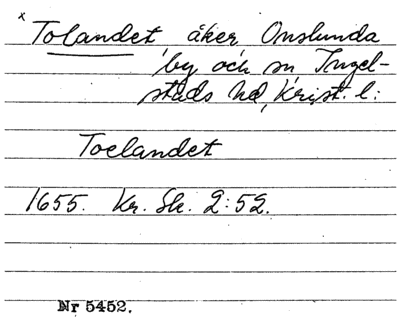 x
Tolandet åker Onslunda
by och sn, Ingel-
stads hd, Krist. l:
Toelandet
1655. Kr. Sk. 2:52.
Nr 5452.